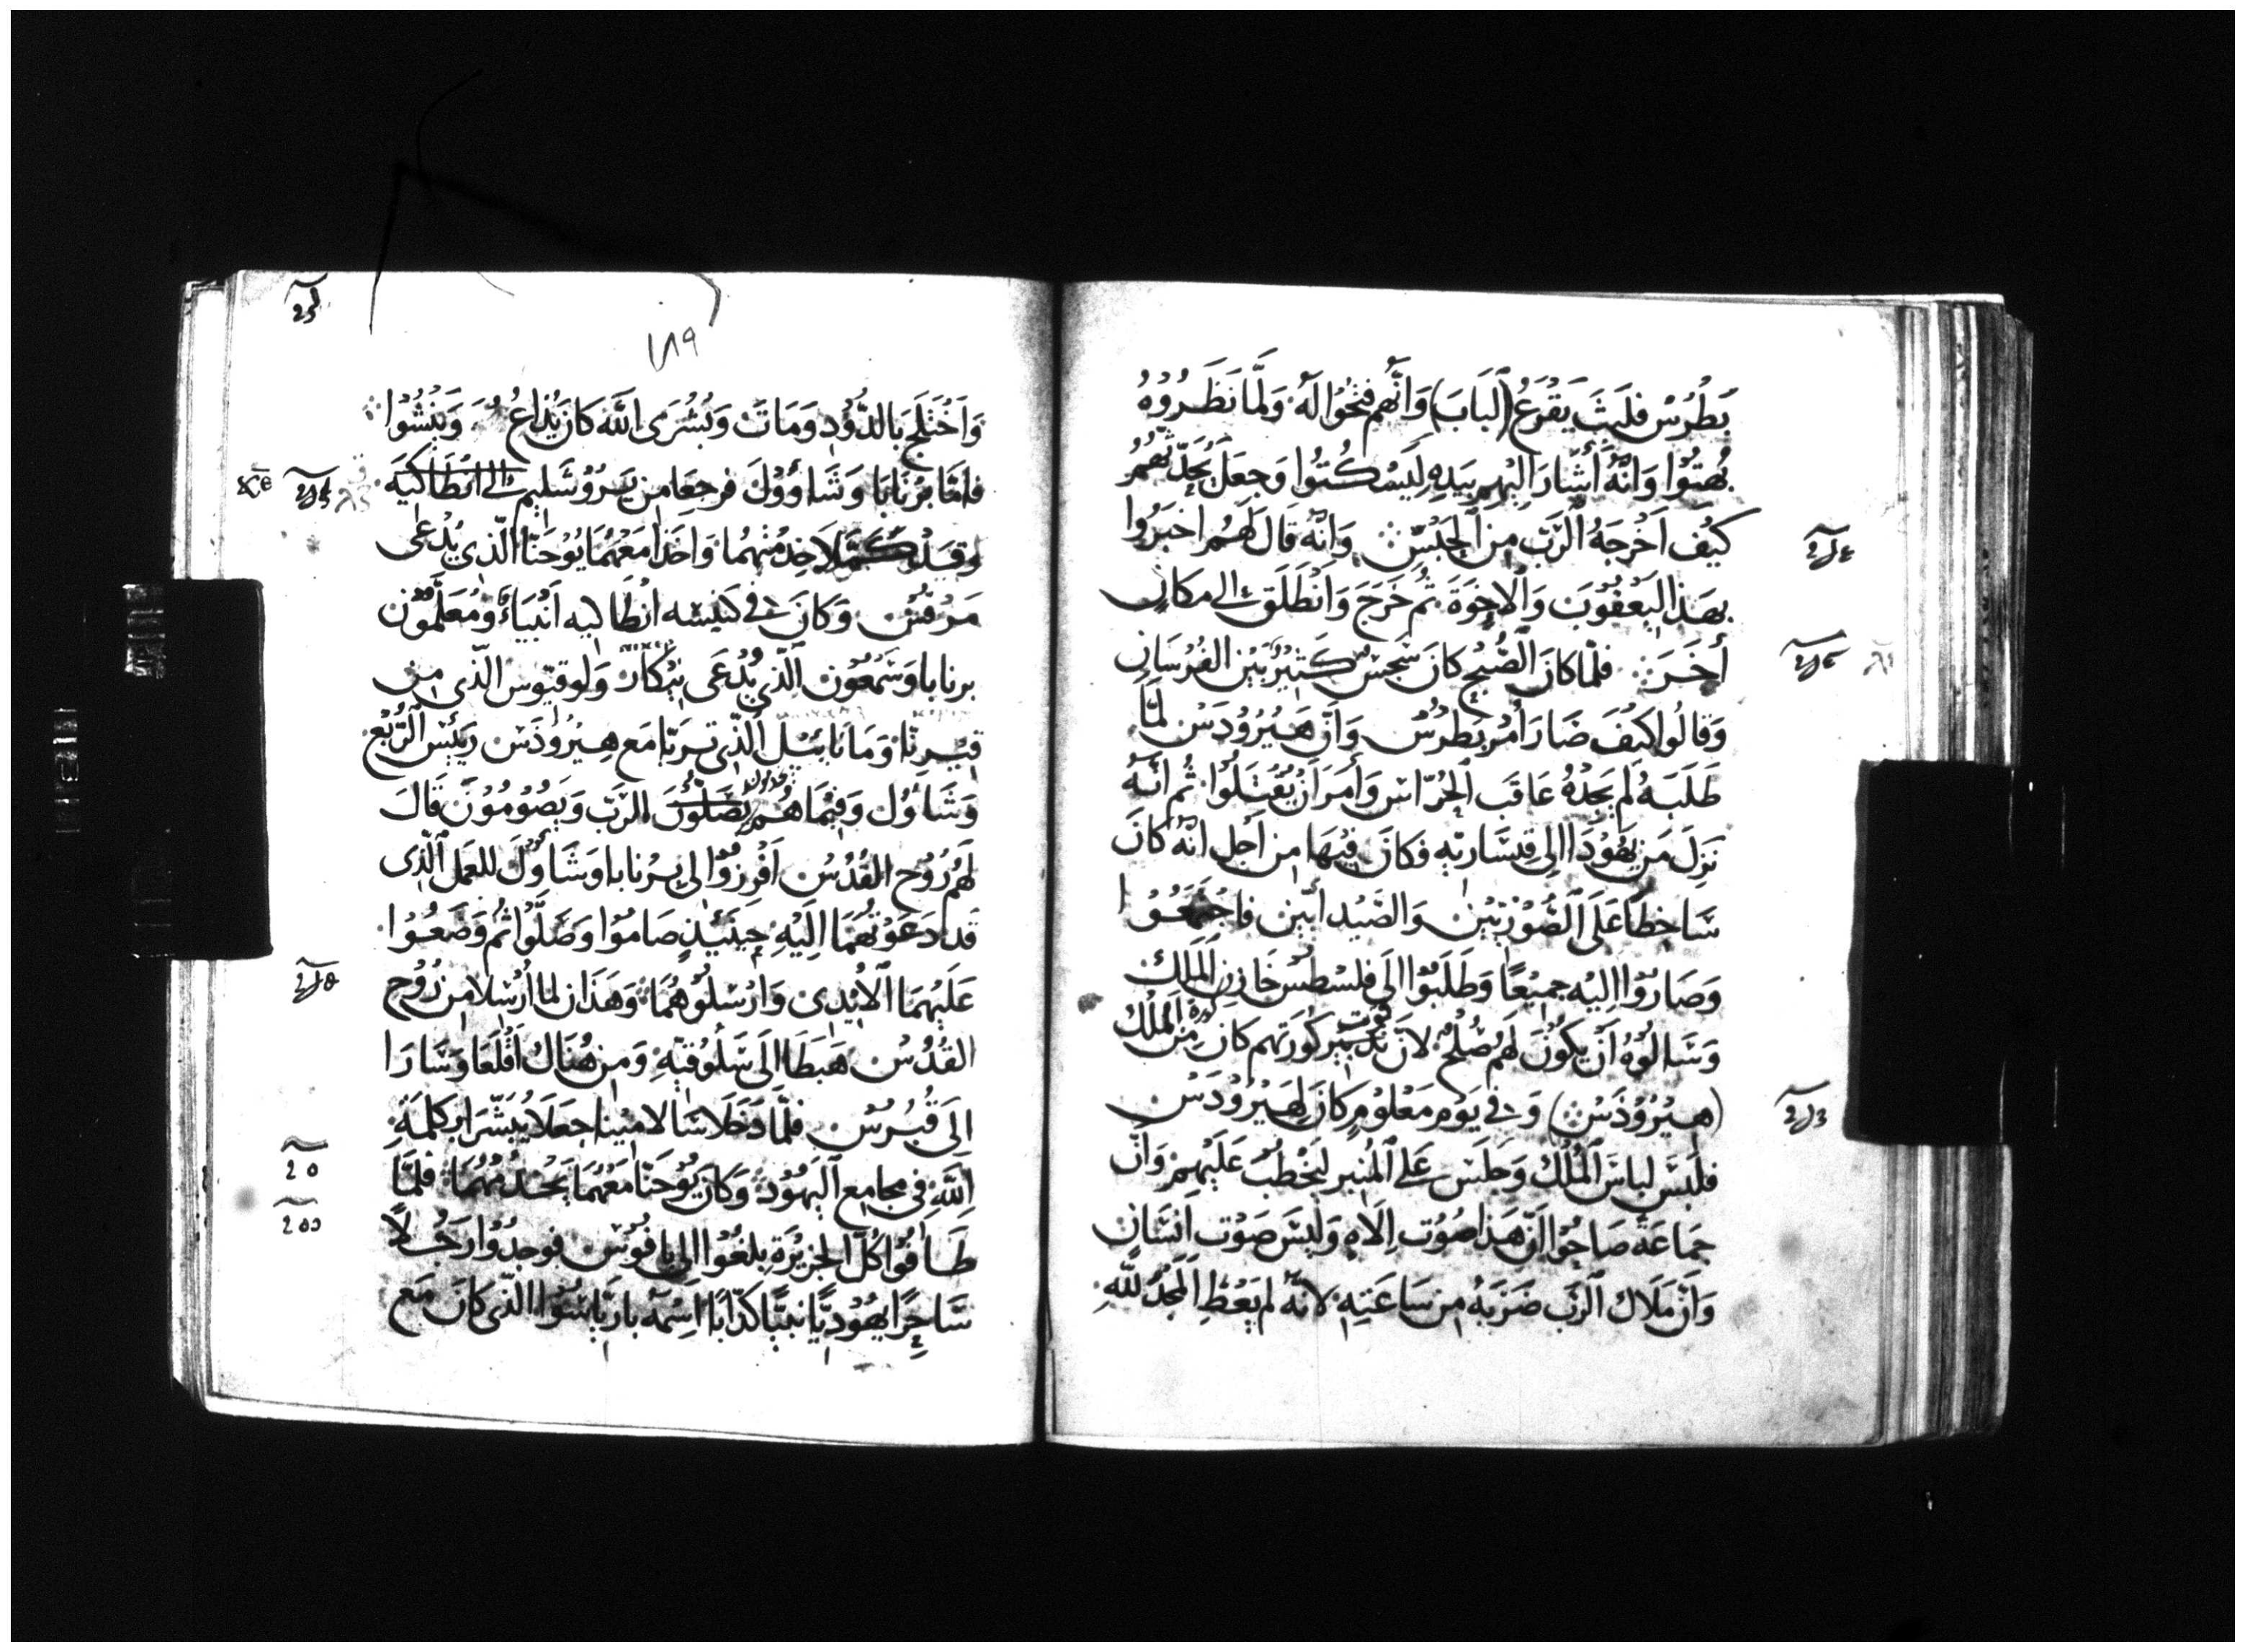 بَطْرُسْ فلَبِثَ يَقْرَعُ (الْبَابَ) وَانَّهُم فتَحُوا لَهُ وَلَمَّا نَظَرُوْهُ
بُهتُوْا وَانَّهُ أَشَارَ اليْهِم بِيَدِهِ لِيَسْكُتُوا وَجعَلَ يُحَدِّثهُمُ
كيْف اَخْرجَهُ الرَّبّ مِن الْحَبْسِ وَانَّه قَالَ لَهُم اخبَرُوا
بهَذا ليَعْقُوْبَ وَالاخِوَةَ ثم خَرَجَ وَانْطَلَقَ الى مكَانٍ
أخَرَ فلمّا كانَ الصُّبْحِ كانَ سَجسٌ كَثِيْرٌ بَيْن الفُرْسَانِ
وَقالُوا كيْفَ صَارَ أمْر بَطرُسْ وَانَّ هِيْرُوْدَسْ لمّا
طَلَبَهُ لَم يَجدْهُ عَاقَب الْحُرّاس وَأمَرَ اَنْ يُقْتَلُوا ثُم انَّهُ
نَزِلَ مَن يَهُوْدَا الى قِيسَاريّهِ فكانَ فِيْهَا مِن اَجْلِ انَّهُ كانَ
سَاخِطًا عَلَى الصُّوْرِيّيْنَ وَالصَّيْدَانِيّينَ فاجْتَمَعُوْا
وَصَارُوْا اِليْهِ جمِيْعًا وَطَلَبُوْا الَى فلسْطُسْ خَازِن الْمَلِكْ
وَسَالُوهُ اَنْ يَكُوْنَ لَهُم صُلْحٌ لانَّ قوت تدْبيْر كُورَتِهم كانَ مِنْ كورة الْمَلِكْ
(هِيْرُوْدَسْ) وَفى يَوْمٍ مَعْلُوْمٍ كانَ لِهيْرُوْدَسْ
فلَبَسَ لباسَ الْمُلْك وَجَلَسَ عَلى الْمِنْبر ليَخْطُبَ عَلَيْهِمْ وَانَّ
جَمَاعَةً صَاحُوْا اَنَّ هَذا صَوْت اِلَاهٍ وَلَيْسَ صَوْت اِنسَانٍ
وَانَّ مَلَاك الرَّبّ ضَرَبَهُ مِن سَاعَتِهِ لانَّهُ لم يُعْطِ الْمَجْدَ للّهِ
١٨٩
وَاَخْتَلَجَ بالدُّوْدِ وَمَاتَ وَبُشْرَى اللّه كانَ يُذَاعُ وَيَنْشُوْا
فأمَّا بَرْنَابَا وَشَاؤُوْلَ فرجعَا مِن يَرُوْشَلِيم الى انْطَاكيَه
وقدْ كمّلا خِدْمَتهُمَا وَاخَذا مَعَهُمَا يُوْحَنَّا الّذي يُدْعَى
مَرْقُسْ وَكانَ فى كنيْسَه انْطَاكيه اَنْبيَاءٌ وَمُعَلّمُوْن
برنابا وَشَمْعُوْن الّذي يُدْعَى نِيْكارْ وَلوقيوس الّذي من
قيْرنا وَمانابِيْل الّذي تربّا مَع هِيْرُوْدَسْ رَيِّس الرُّبْع
وَشَاوُل وَفيْمَا هُم يُصَلّوْنَ الرَّبّ وَيَصُوْمُوْنَ قَالَ
لَهُم رُوْح القُدُسْ اَفْرِزُوْا لى بَرْنابا وَشَاوُلَ للعَمل الّذي
قد دَعَوْتُهُمَا اِلَيْهِ حِيْنَئِذٍ صَامُوْا وَصَلَّوْا ثُم وَضَعُوْا
عَلَيْهُمَا الْاَيْدِي وَارْسَلُوْهُمَا وَهَذَان لما اُرْسلا من رُوْح
القُدُسْ هَبَطَا الَى سَلُوْقيّهِ وَمِن هُنَاك اَقْلَعَا وَسَارَا
اِلَى قُبْرُسْ فلمَّا دَخَلَا سَالامِيْنا جعَلا يُبَشّرَا بكلمَةِ
اللّهِ فى مجامِع اليَهُوْد وَكانَ يُوْحَنّا مَعَهُمَا يَخْدُمُهُمَا فلَمَّا
طَافُوْا كُلّ الجزِيْرَةِ بلَغُوْا الى بافُوْسْ فوجدُوْا رَجُلاً
سَاحِرًا يَهُوْدِيًّا نبيًّا كذّابًا اسْمَهُ بارياشُوْا الّذي كانَ مَع